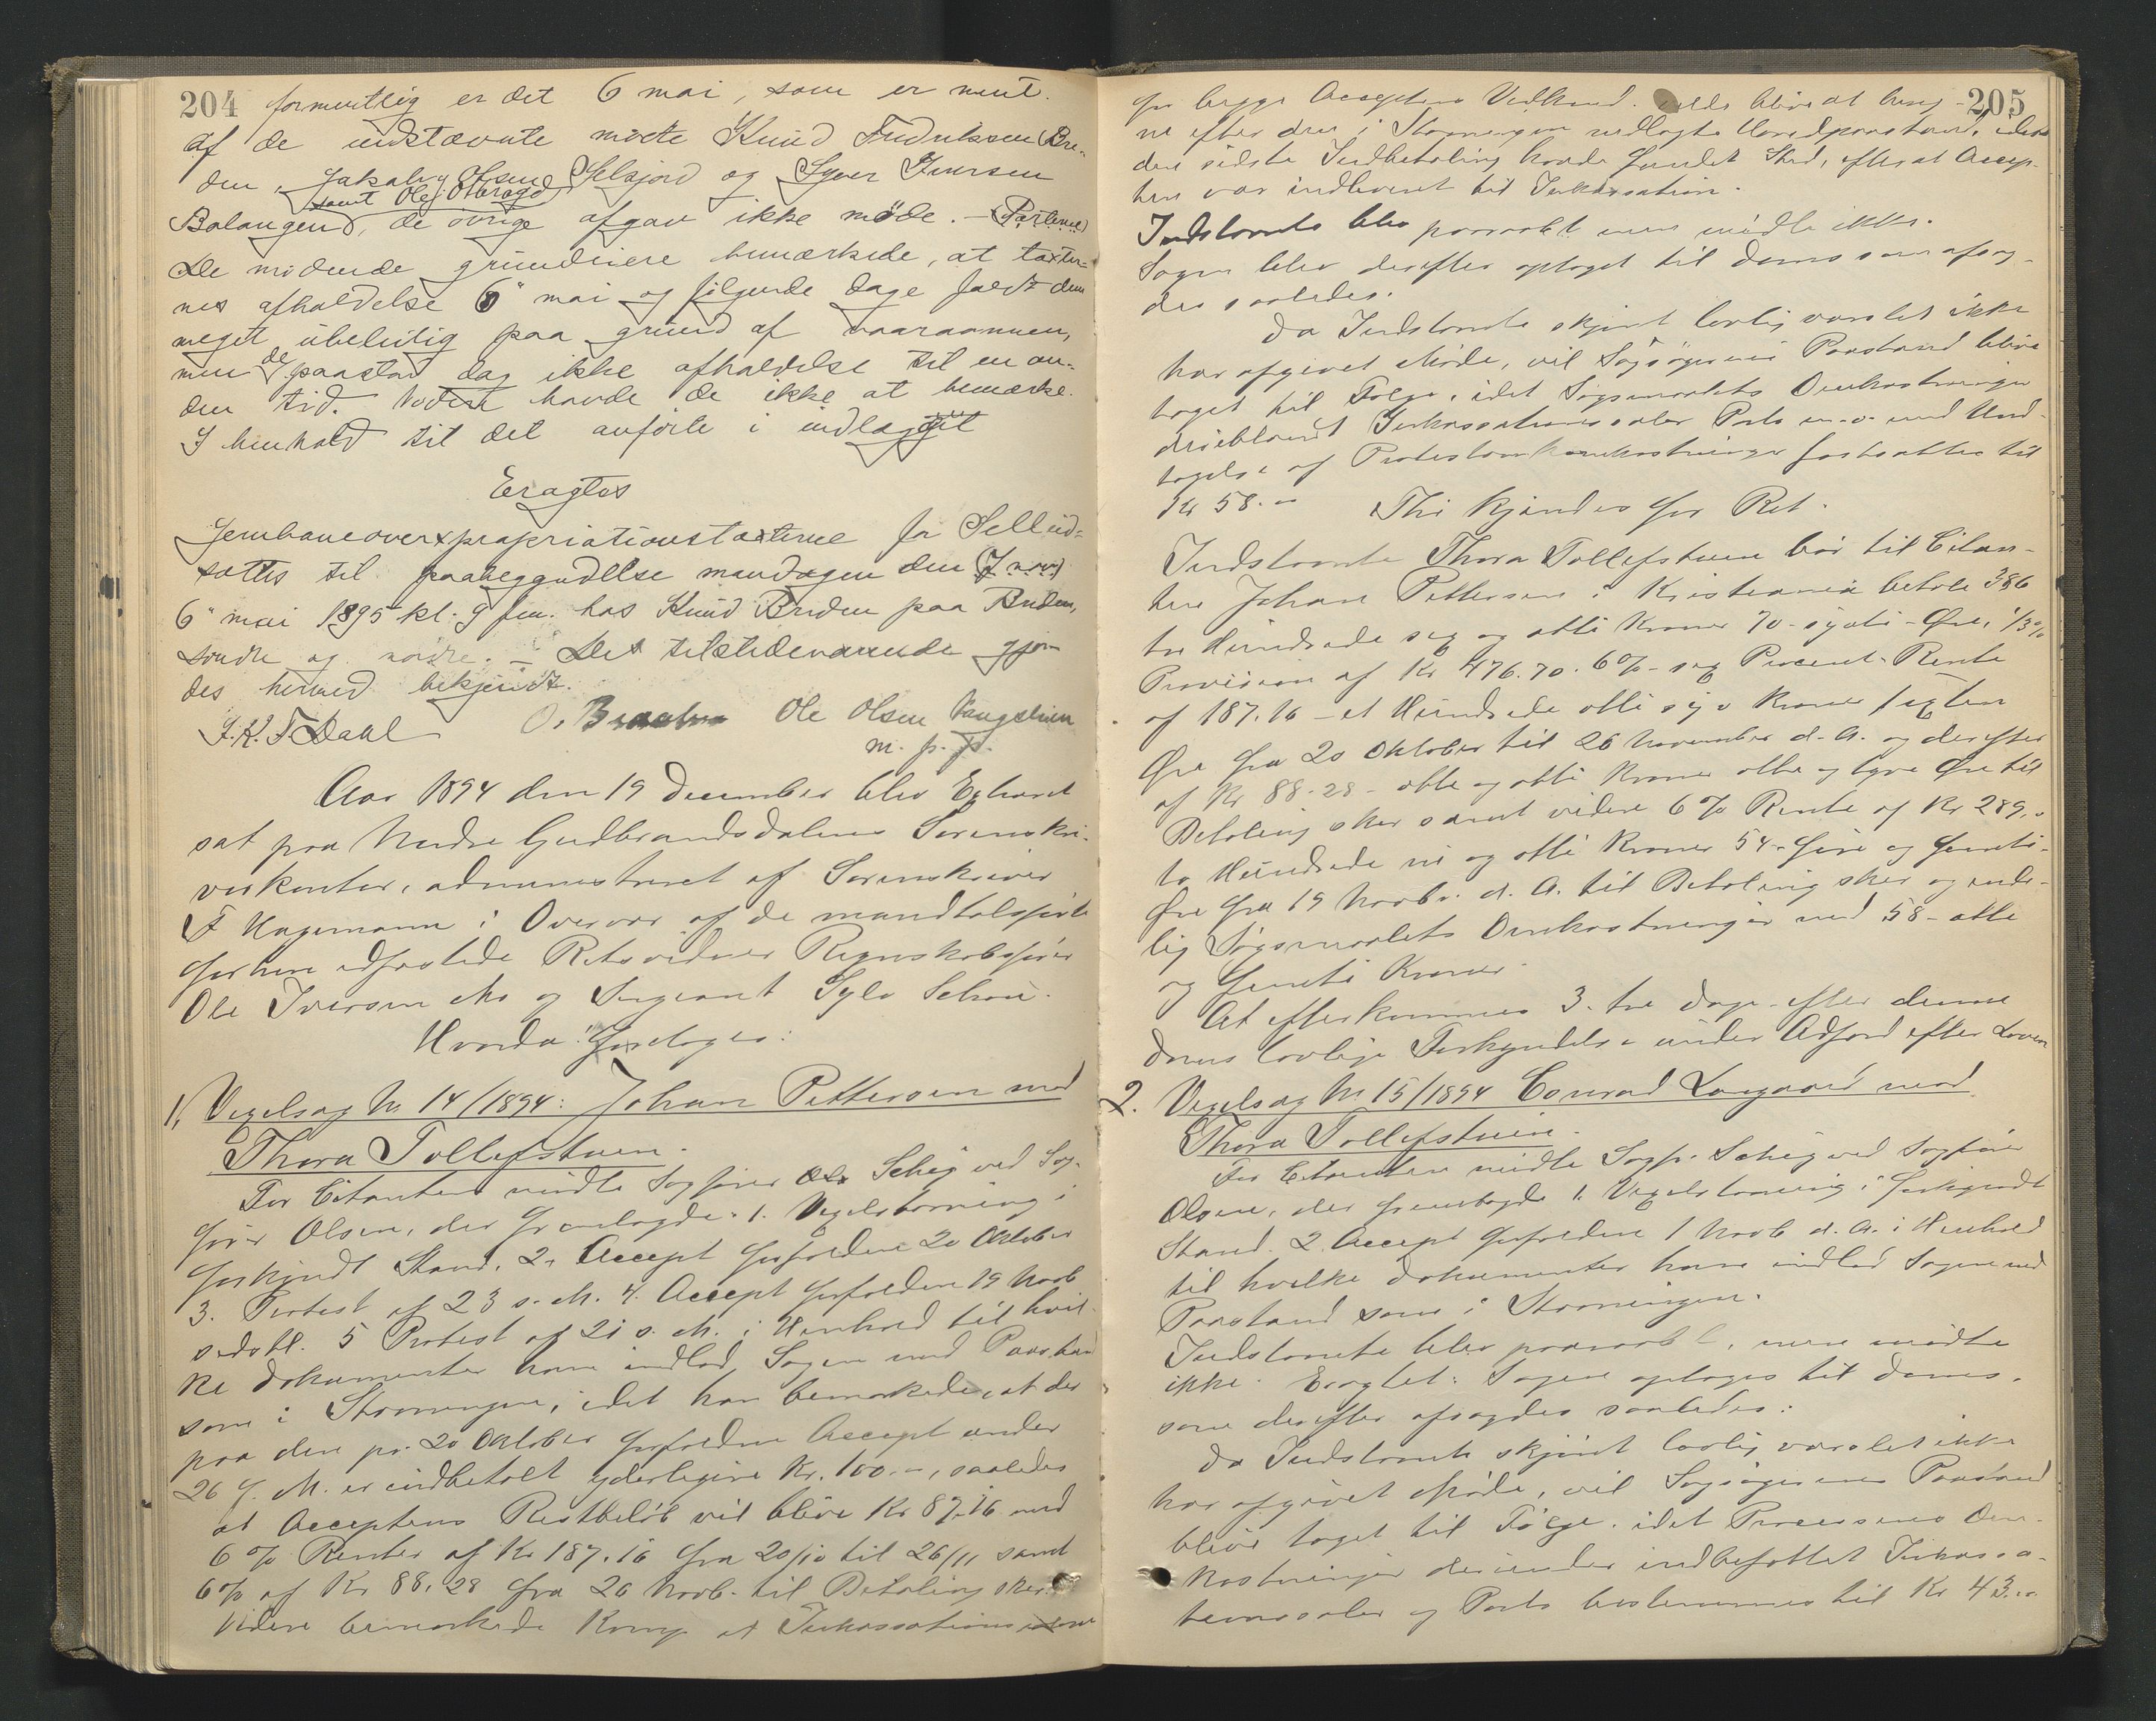 204 formentlig er det 6 mai, som er ment.
af de indstævnte mødte Knud Fredriksen Bre-
den, Jakob Olsen Selsjord og Syver Iversen
samt Ole
Balangen, de øvrige afgav ikke møde. –
De mødende grundeiere bemærkede, at taxter-
nes afholdelse 6" mai og følgende dage faldt dem
meget ubeleilig paa grund af vaaraannen,
men de paastod dog ikke afholdelse til en an-
den tid. havde de ikke at bemærke.
I henhold til det anførte i indlægget
Eragtes
Jernbaneoverexpropriationstaxterne for Sell ud-
sættes til paabegyndelse mandagen den
6" mai 1895 kl. 9 fm. hos Knud Breden paa Breden,
søndre og nordre. – Det tilstedeværende gjør-
des hermed bekjendt.
J.K.F. Dahl O. Braaten Ole Olsen Vangstuen
m. p. p.
Aar 1894 den 19 December blev Extraret
sat paa Nordre Gudbrandsdalens Sorenskri-
verkontor, administreret af Sorenskriver
F Hagemann i Overvær af de mandtalsførte
forhen edfæstede Retsvidner Regnskabsfører
Ole Iversen Mo og Sergeant Sylv Schou.
Hvorda foretoges:
1, Vexelsag No 14/1894: Johan Pettersen mod
Thora Tollefstuen.
For Citanten mødte Sagfører Schig ved Sag-
fører Olsen, der fremlagde: 1. Vexelstævning i
forkyndt Stand, 2. Accept forfalden 20 Oktober
3. Protest af 23 s. M. 4. Accept forfalden 19 Novb
sidstl. 5 Protest af 21 s. M. i Henhold til hvil-
ke Dokumenter han indlod Sagen med Paastand
som i Stævningen, idet han bemærkede, at der
paa den pr. 20 Oktober forfaldne Accept under
26 f. M. er indbetalt yderligere Kr. 100.–, saaledes
at Acceptens Restbeløb vil blive Kr 87.16 med
6 % Renter af Kr 187.16 fra 20/10 til 26/11 samt
6 % af Kr 88.28 fra 26 Novb. til Betaling sker.
Videre bemærkede Komp at Inkassations
205
for begge Accepters Vedkend. vilde blive at bereg-
ne efter den i Stævningen nedlagte Hovedpaastand, idet
den sidste Indbetaling havde fundet Sted, efter at Accep-
ten var indleveret til Inkassation.
Indstævnte blev paaraabt men mødte ikke.
Sagen blev derefter optaget til Doms som afsag-
des saaledes:
Da Indstævnte skjønt lovlig varslet ikke
har afgivet Møde, vil Sagsøgerens Paastand blive
taget til Følge, idet Søgsmaalets Omkostninger
deriblandt Inkassationssalær Porto m. v. med Und-
tagelse af Protestomkostninger fastsættes til
Kr 58.–
Thi kjendes for Ret.
Indstævnte Thora Tollefstuen bør til Citan-
ten Johan Pettersen i Kristiania betale 386
tre Hundrede sex og otti Kroner 70 – sytti – Øre, 1/3 %
Provision af Kr 476.70. 6 % – sex Procent – Rente
af 187.16 – et Hundrede otti syv Kroner sexten
Øre fra 20 Oktober til 26 November d. A. og derefter
af Kr 88.28 – otte og otti Kroner otte og tyve Øre til
Betaling sker samt videre 6 % Rente af Kr 289.
to Hundrede ni og otti Kroner 54 – fire og femti –
Øre fra 19 Novbr. d. A. til Betaling sker og ende-
lig Søgsmaalets Omkostninger med 58 – otte
og femti Kroner.
At efterkommes 3 – tre Dage efter denne
Doms lovlige Forkyndelse under Adfærd efter Loven
2. Vexelsag No 15/1894 Conrad Langaard mod
Thora Tollefstuen.
For Citanten mødte Sagf. Schig ved Sagfører
Olsen, der fremlagde 1. Vexelstævning i forkyndt
Stand. 2. Accept forfalden 1 Novb d. A. i Henhold
til hvilke Dokumenter han indlod Sagen med
Paastand som i Stævningen.
Indstævnte blev paaraabt, men mødte
ikke. Eragtet: Sagen optages til Doms,
som derefter afsagdes saaledes:
Da Indstævnte skjønt lovlig varslet ikke
har afgivet Møde, vil Sagsøgerens Paastand
blive taget til Følge, idet Processens Om-
kostninger derunder indbefattet Inkassa-
tionssalær og Porto bestemmes til Kr 43.–